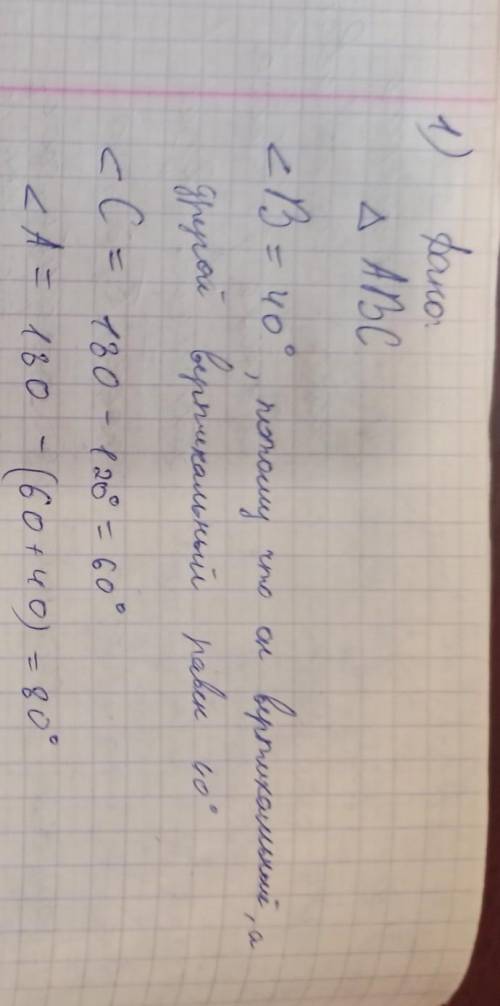 1) Дано:
△ ABC
< B = 40°, потому что он вертикальный, а
другой вертикальный равен 40°
< C = 180 - 120° = 60°
< A = 180 - (60 + 40) = 80°